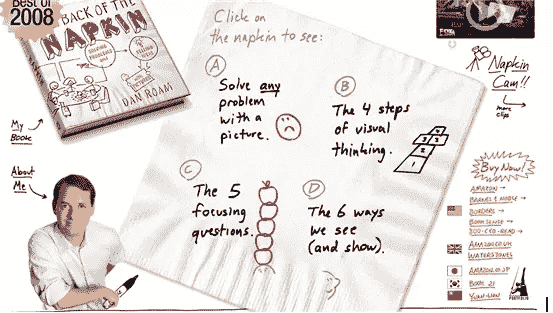 Best of
2008
BACK OF THE
NAPKIN
SOLVING PROBLEMS AND
SELLING IDEAS
WITH PICTURES
DAN ROAM
My
Book
About
Me
Click on
the napkin to see:
A
Solve any
problem
with a
picture.
B
The 4 steps
of visual
thinking.
C
The 5
focusing
questions.
D
The 6 ways
we see
(and show).
Napkin
Cam!!
more
clips
Buy Now!
AMAZON →
BARNES & NOBLE →
BORDERS →
BOOKSENSE →
800-CEO-READ →
AMAZON.CO.UK
WATERSTONES
AMAZON.CO.JP
BOOK 21
YUAN-LIOU
PORTFOLIO